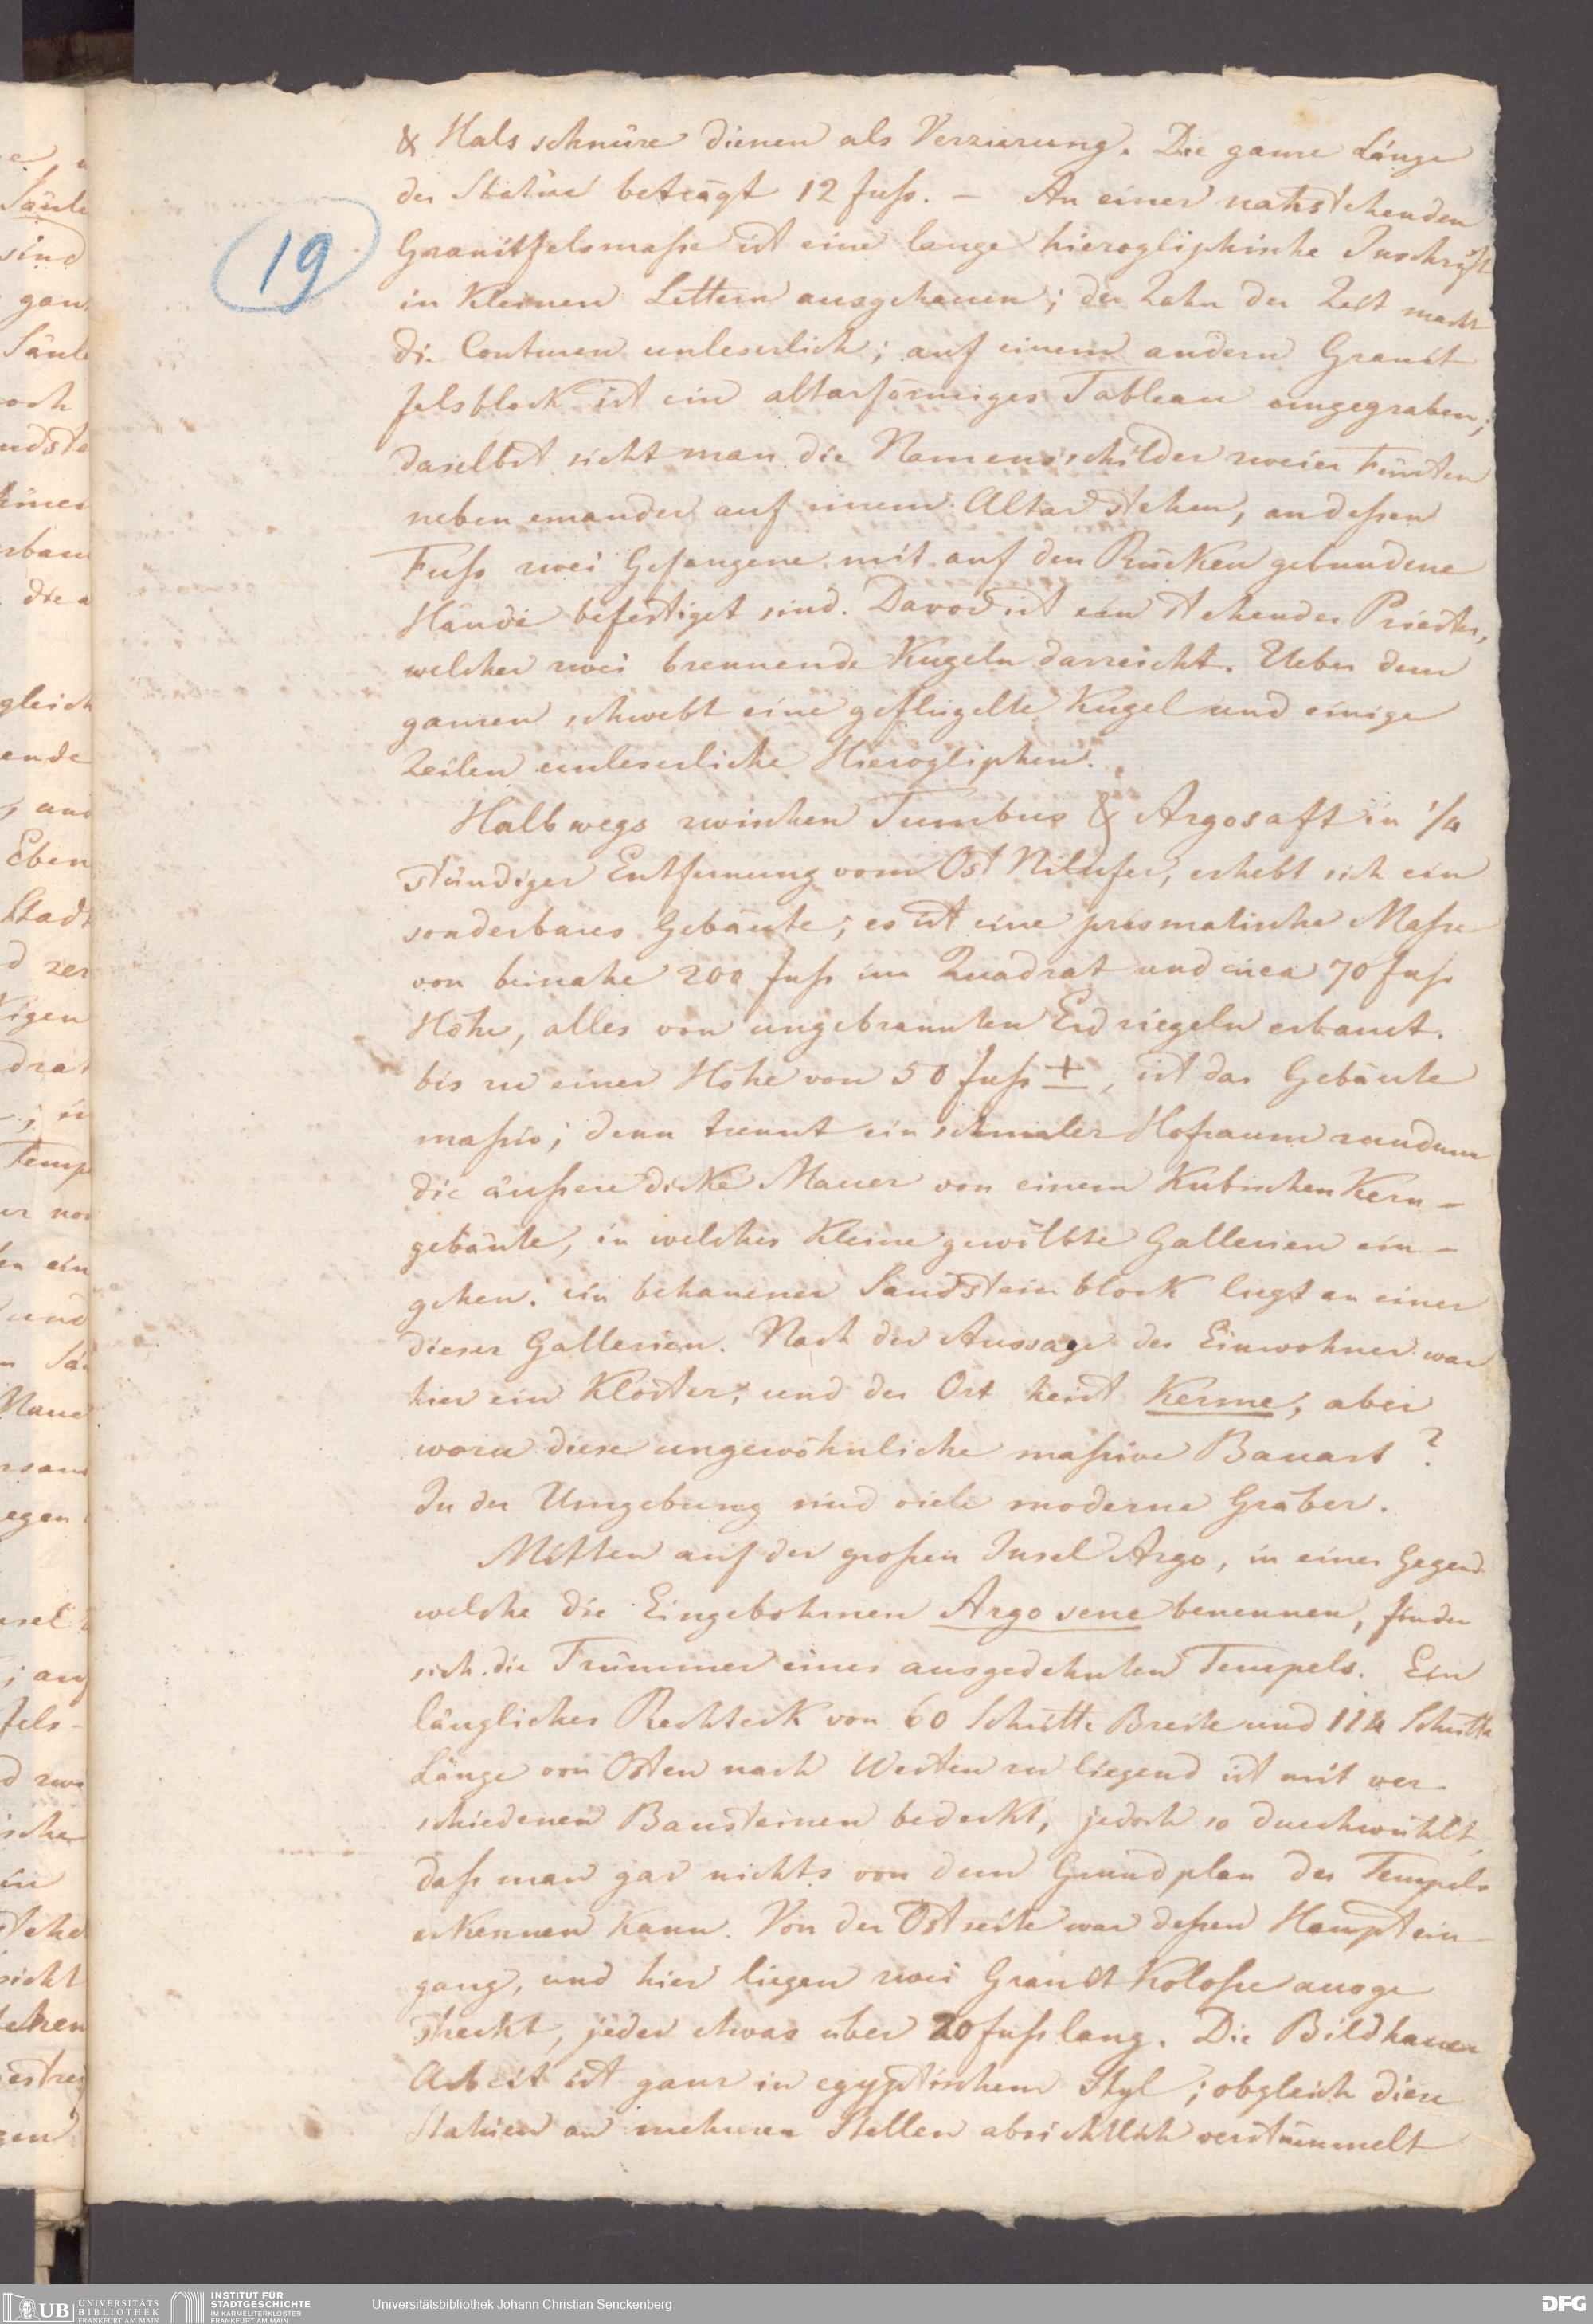 & Halsschnüre dienen als Verzierung. Die ganze Länge
der Statüe beträgt 12 fuß. – An einer nahstehenden
Granitfelsmaße ist eine lange hierogliphische Inschrift
in Kleinen Lettern ausgehauen; der Zahn der Zeit macht
die Conturen unleserlich; auf einem andern Granit
felsblock ist ein altarförmiges Tableau eingegraben;
daselbst sieht man die Namensschilder zweier Fürsten
neben einander auf einem Altar stehen, an deßen
Fuß zwei Gefangene mit auf den Rücken gebundene
Hände befestiget sind. Davor ist ein stehender Priester,
welcher zwei brennende Kugeln darreicht. Ueber dem
ganzen schwebt eine geflügelte Kugel und einige
Zeilen unleserliche Hierogliphen.
Halbwegs zwischen Tumbus & Argosaft in 1/4
stündiger Entfernung vom Ost Nilufer, erhebt sich ein
sonderbares Gebäute; es ist eine prismatische Maße
von beinahe 200 fuß im Quadrat und circa 70 fuß
Höhe, alles von ungebrannten Erdziegeln erbaut.
bis zu einer Höhe von 50 fuß ±, ist das Gebäute
maßiv; denn trennt ein schmaler Hofraum rundum
die äußere dicke Mauer von einem Kubischen Kern-
gebäute, in welches Kleine gewölbte Gallerien ein-
gehen. ein behauener Sandsteinblock liegt an einer
dieser Gallerien. Nach der Aussage der Einwohner war
hier ein Kloster, und der Ort heist Kerme, aber
wozu diese ungewöhnliche maßive Bauart ?
In der Umgebung sind viele moderne Gräber.
Mitten auf der großen Insel Argo, in einer Gegend
welche die Eingebohrnen Argo sene benennen, finden
sich die Trümmer eines ausgedehnten Tempels. Ein
längliches Rechteck von 60 Schritte Breite und 114 Schritte
Länge von Osten nach Westen zu liegend ist mit ver-
schiedenen Bausteinen bedeckt, jedoch so durchwühlt,
daß man gar nichts von dem Grundplan des Tempels
erkennen Kann. Von der Ostseite war deßen Hauptein-
gang, und hier liegen zwei Granit Koloße ausge
streckt, jeder etwas über 20 fuß lang. Die Bildhauer
Arbeit ist ganz in egyptischem Styl; obgleich diese
Statuen an mehreren Stellen absichtlich verstümmelt
19
UB UNIVERSITÄTS
BIBLIOTHEK
FRANKFURT AM MAIN
INSTITUT FÜR
STADTGESCHICHTE
IM KARMELITERKLOSTER
FRANKFURT AM MAIN
Universitätsbibliothek Johann Christian Senckenberg
DFG